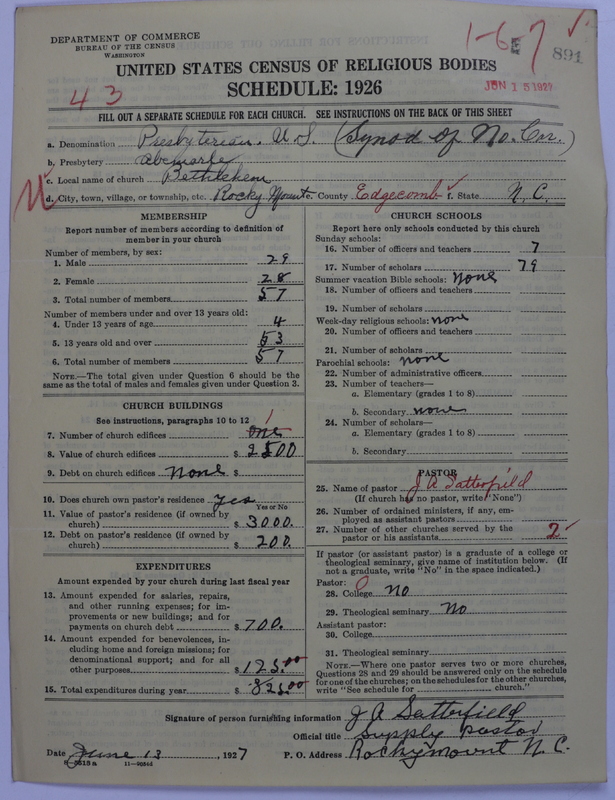 DEPARTMENT OF COMMERCE
BUREAU OF THE CENSUS
WASHINGTON
1-6-7 ✓
891
UNITED STATES CENSUS OF RELIGIOUS BODIES
SCHEDULE: 1926
43
JUN 15 1927
FILL OUT A SEPARATE SCHEDULE FOR EACH CHURCH. SEE INSTRUCTIONS ON THE BACK OF THIS SHEET
a. Denomination Presbyterian. U.S. (Synod of No. Car.)
b. Presbytery Abemarle
c. Local name of church Bethlehem
d. City, town, village, or township, etc. Rocky Mount e. County Edgecomb f. State N. C.
MEMBERSHIP
Report number of members according to definition of member in your church
Number of members, by sex:
1. Male 29
2. Female 28
3. Total number of members 57
Number of members under and over 13 years old:
4. Under 13 years of age 4
5. 13 years old and over 53
6. Total number of members 57
NOTE.—The total given under Question 6 should be the same as the total of males and females given under Question 3.
CHURCH BUILDINGS
See instructions, paragraphs 10 to 12
7. Number of church edifices one 1
8. Value of church edifices $ 2500
9. Debt on church edifices None $
10. Does church own pastor's residence yes
Yes or No
11. Value of pastor's residence (if owned by church) $ 3000.
12. Debt on pastor's residence (if owned by church) $ 200.
EXPENDITURES
Amount expended by your church during last fiscal year
13. Amount expended for salaries, repairs, and other running expenses; for improvements or new buildings; and for payments on church debt $ 700.
14. Amount expended for benevolences, including home and foreign missions; for denominational support; and for all other purposes $ 125.00
15. Total expenditures during year $ 825.00
CHURCH SCHOOLS
Report here only schools conducted by this church
Sunday schools:
16. Number of officers and teachers 7
17. Number of scholars 79
Summer vacation Bible schools: none
18. Number of officers and teachers
19. Number of scholars
Week-day religious schools: none
20. Number of officers and teachers
21. Number of scholars
Parochial schools: none
22. Number of administrative officers
23. Number of teachers—
a. Elementary (grades 1 to 8)
b. Secondary none
24. Number of scholars—
a. Elementary (grades 1 to 8)
b. Secondary
PASTOR
25. Name of pastor J A Satterfield
(If church has no pastor, write "None")
26. Number of ordained ministers, if any, employed as assistant pastors
27. Number of other churches served by the pastor or his assistants 2
If pastor (or assistant pastor) is a graduate of a college or theological seminary, give name of institution below. (If not a graduate, write "No" in the space indicated.)
Pastor: 0
28. College No
29. Theological seminary No
Assistant pastor:
30. College
31. Theological seminary
NOTE.—Where one pastor serves two or more churches, Questions 28 and 29 should be answered only on the schedule for one of the churches; on the schedules for the other churches, write "See schedule for ____ church."
Signature of person furnishing information J A Satterfield
Official title Supply pastor
Date June 13, 1927 P. O. Address Rocky mount N. C.